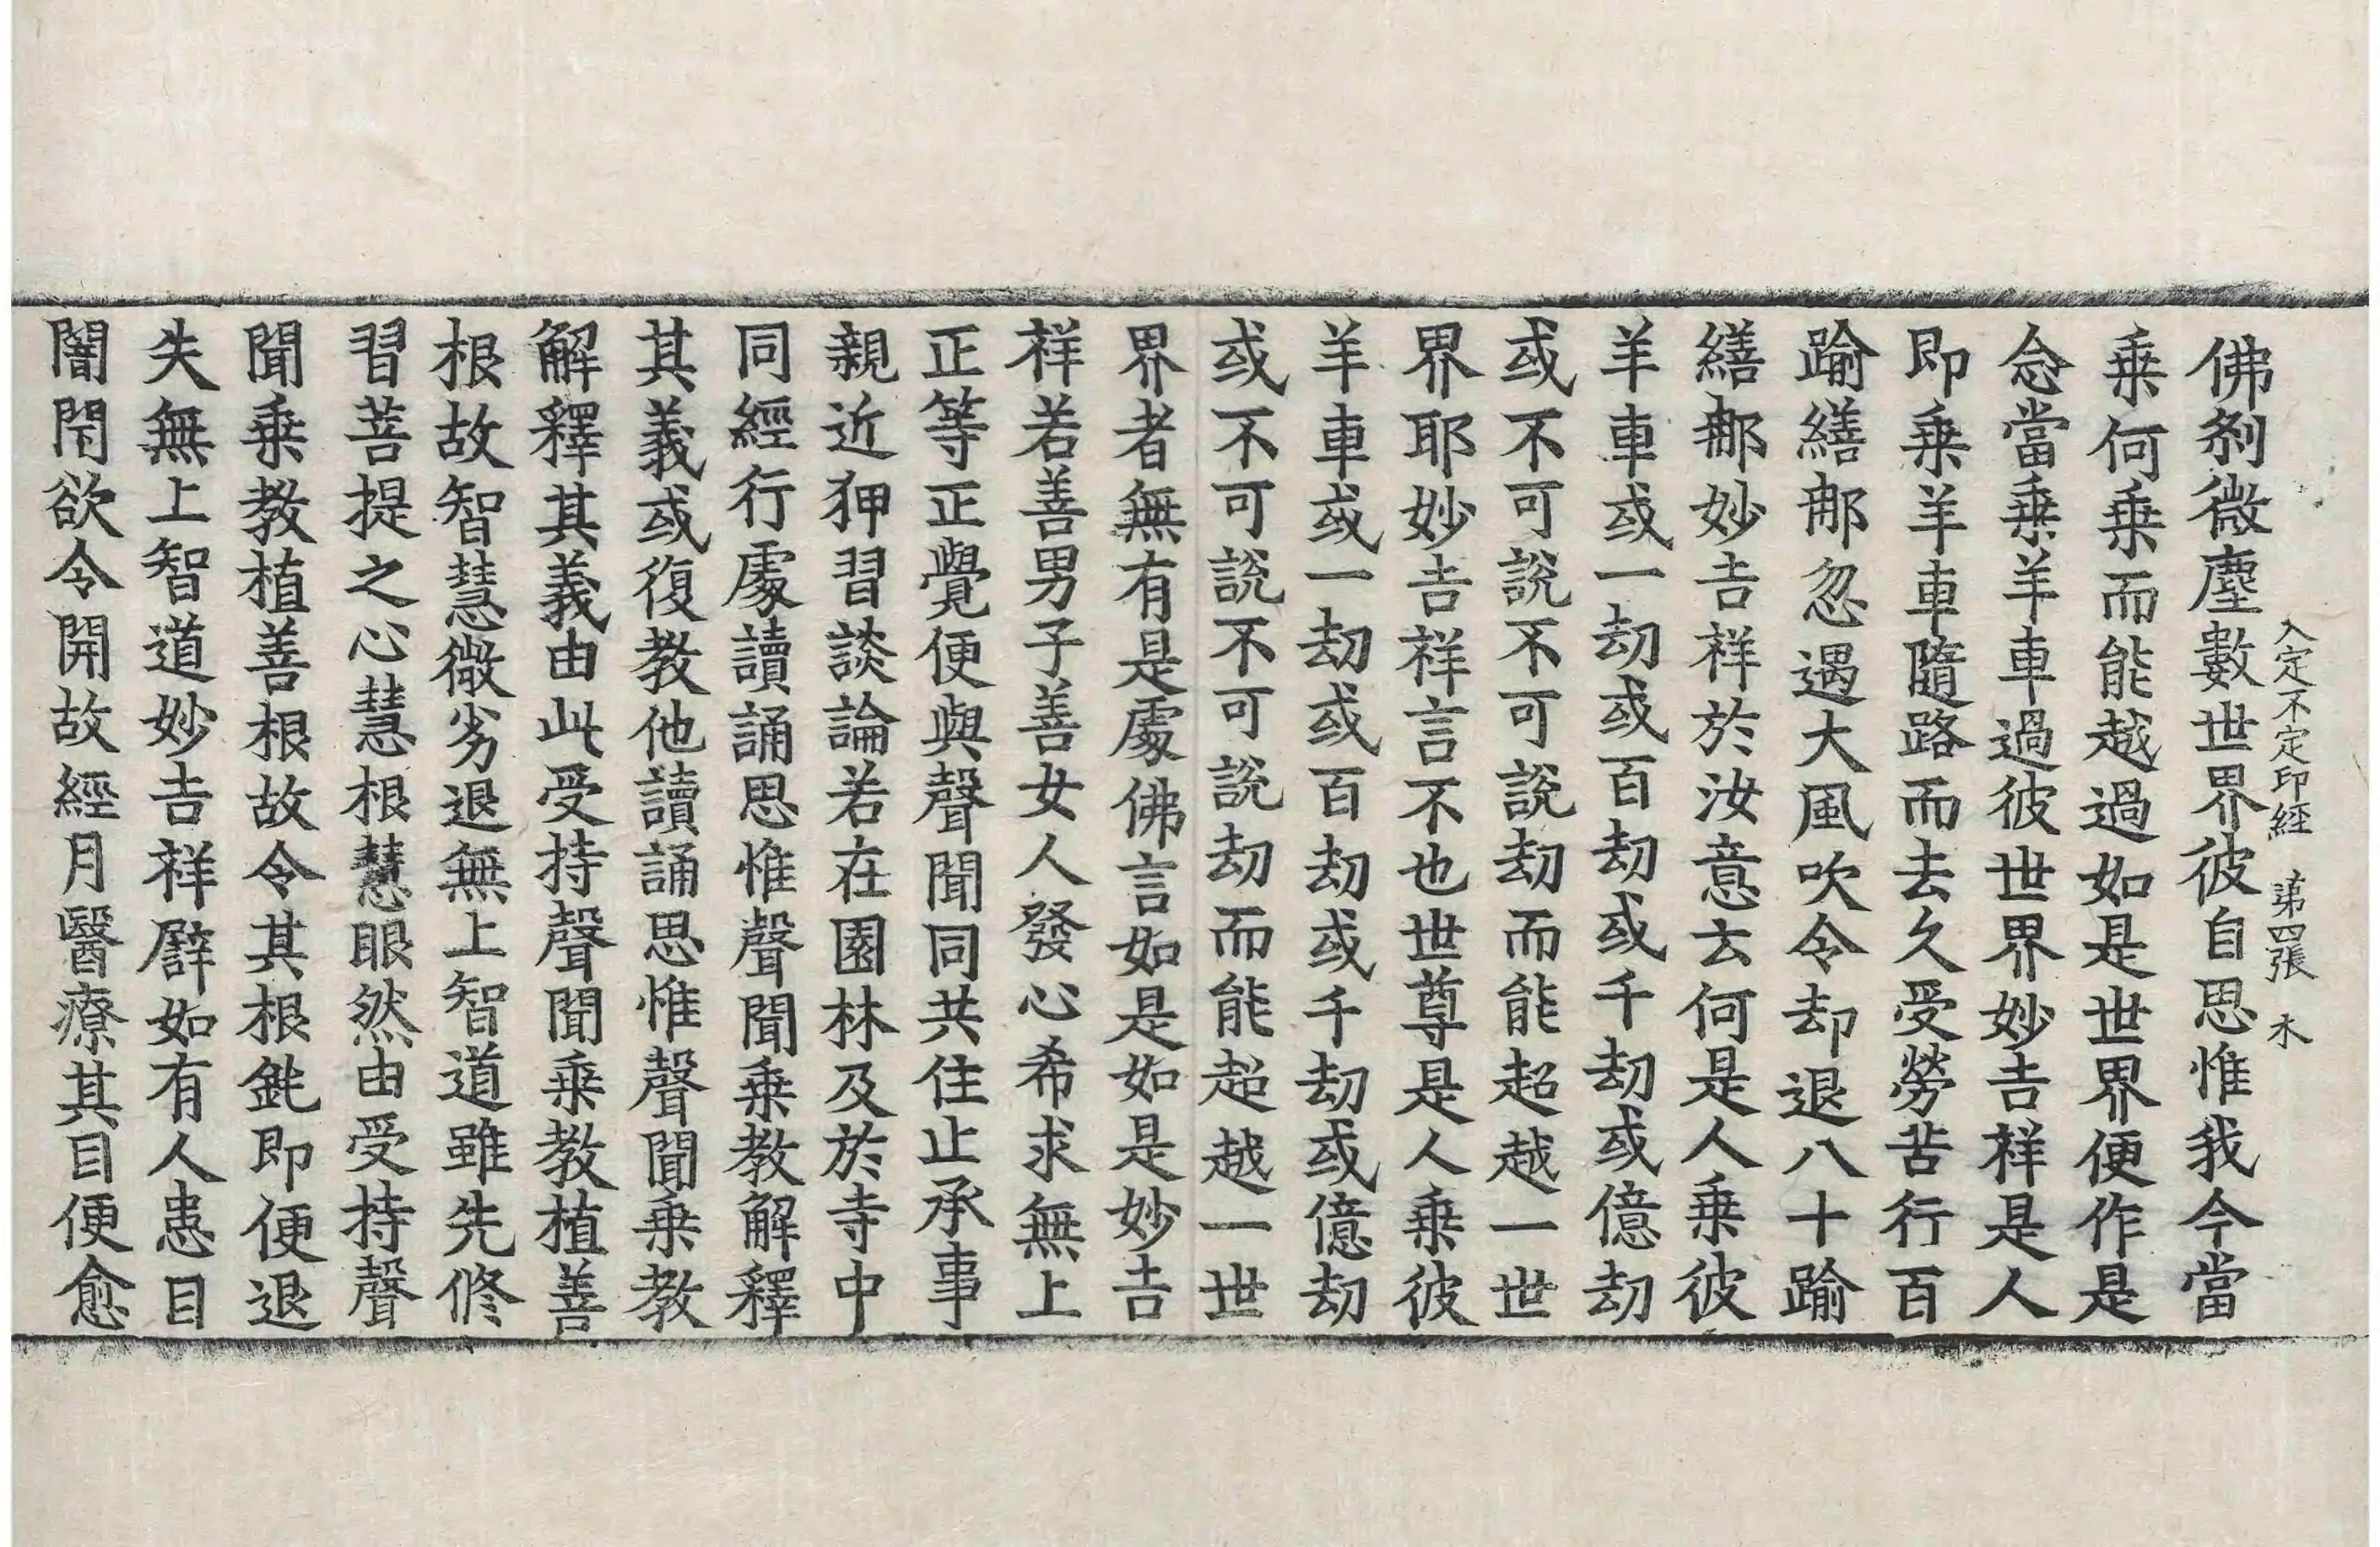 入定不定印經 苐四張 木
佛刹微塵數世界彼自思惟我今當
乗何乗而能越過如是世界便作是
念當乗羊車過彼世界妙吉祥是人
即乗羊車隨路而去久受勞苦行百
踰繕那忽遇大風吹令却退八十踰
繕那妙吉祥於汝意云何是人乗彼
羊車或一劫或百劫或千劫或億劫
或不可說不可說劫而能超越一世
界耶妙吉祥言不也世尊是人乗彼
羊車或一劫或百劫或千劫或億劫
或不可說不可說劫而能超越一世
界者無有是處佛言如是如是妙吉
祥若善男子善女人發心希求無上
正等正覺便與聲聞同共住止承事
親近狎習談論若在園林及於寺中
同經行處讀誦思惟聲聞乗教解釋
其義或復教他讀誦思惟聲聞乗教
解釋其義由此受持聲聞乗教植善
根故智慧微劣退無上智道雖先修
習菩提之心慧根慧眼然由受持聲
聞乗教植善根故令其根鈍即便退
失無上智道妙吉祥譬如有人患目
闇閇欲令開故經月醫療其目便愈